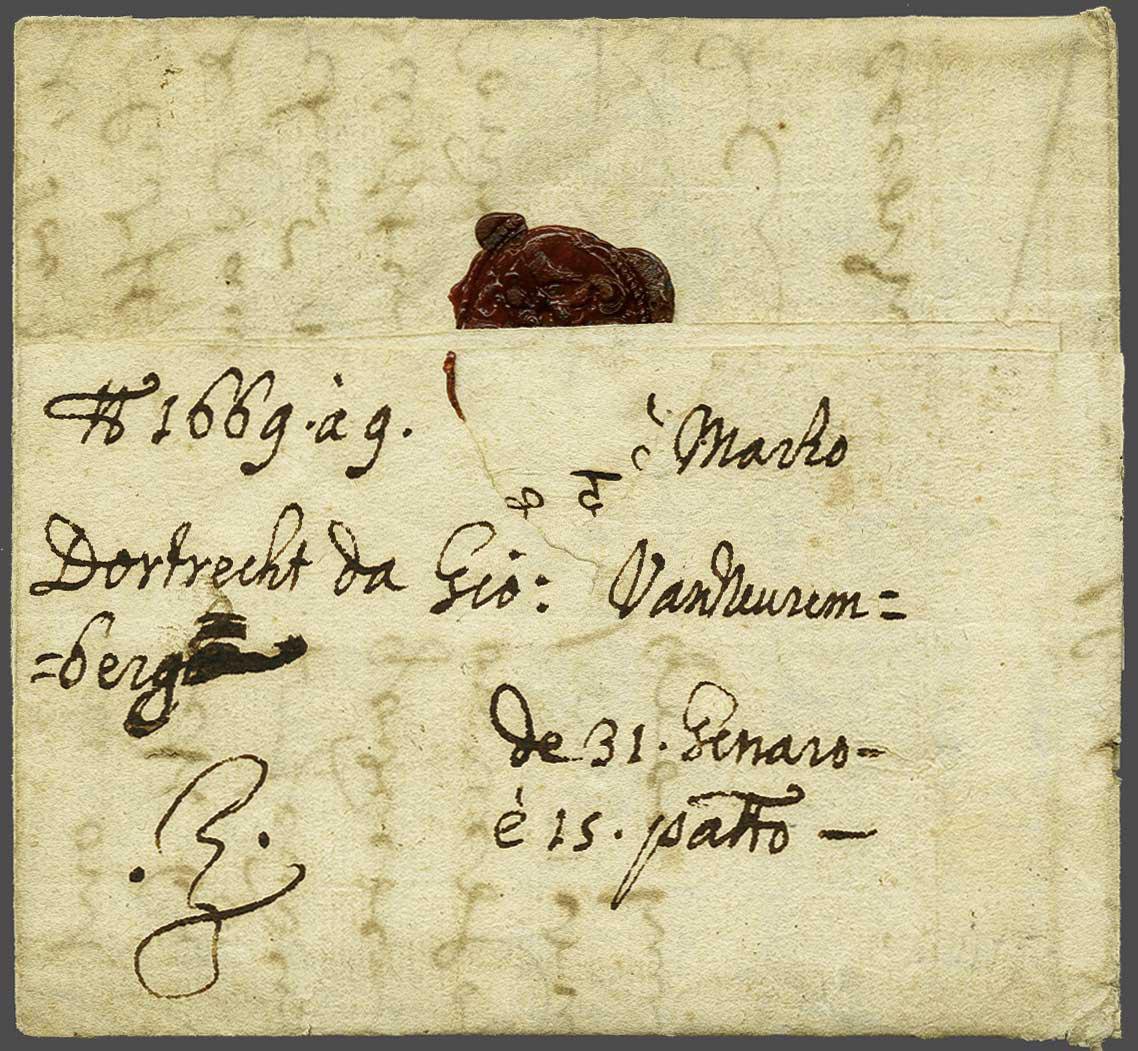 1669. à 9. è Marho
Dortrecht da Gio: Vanneurem=
=berg
de 31. Genaro=
è 15. patto —